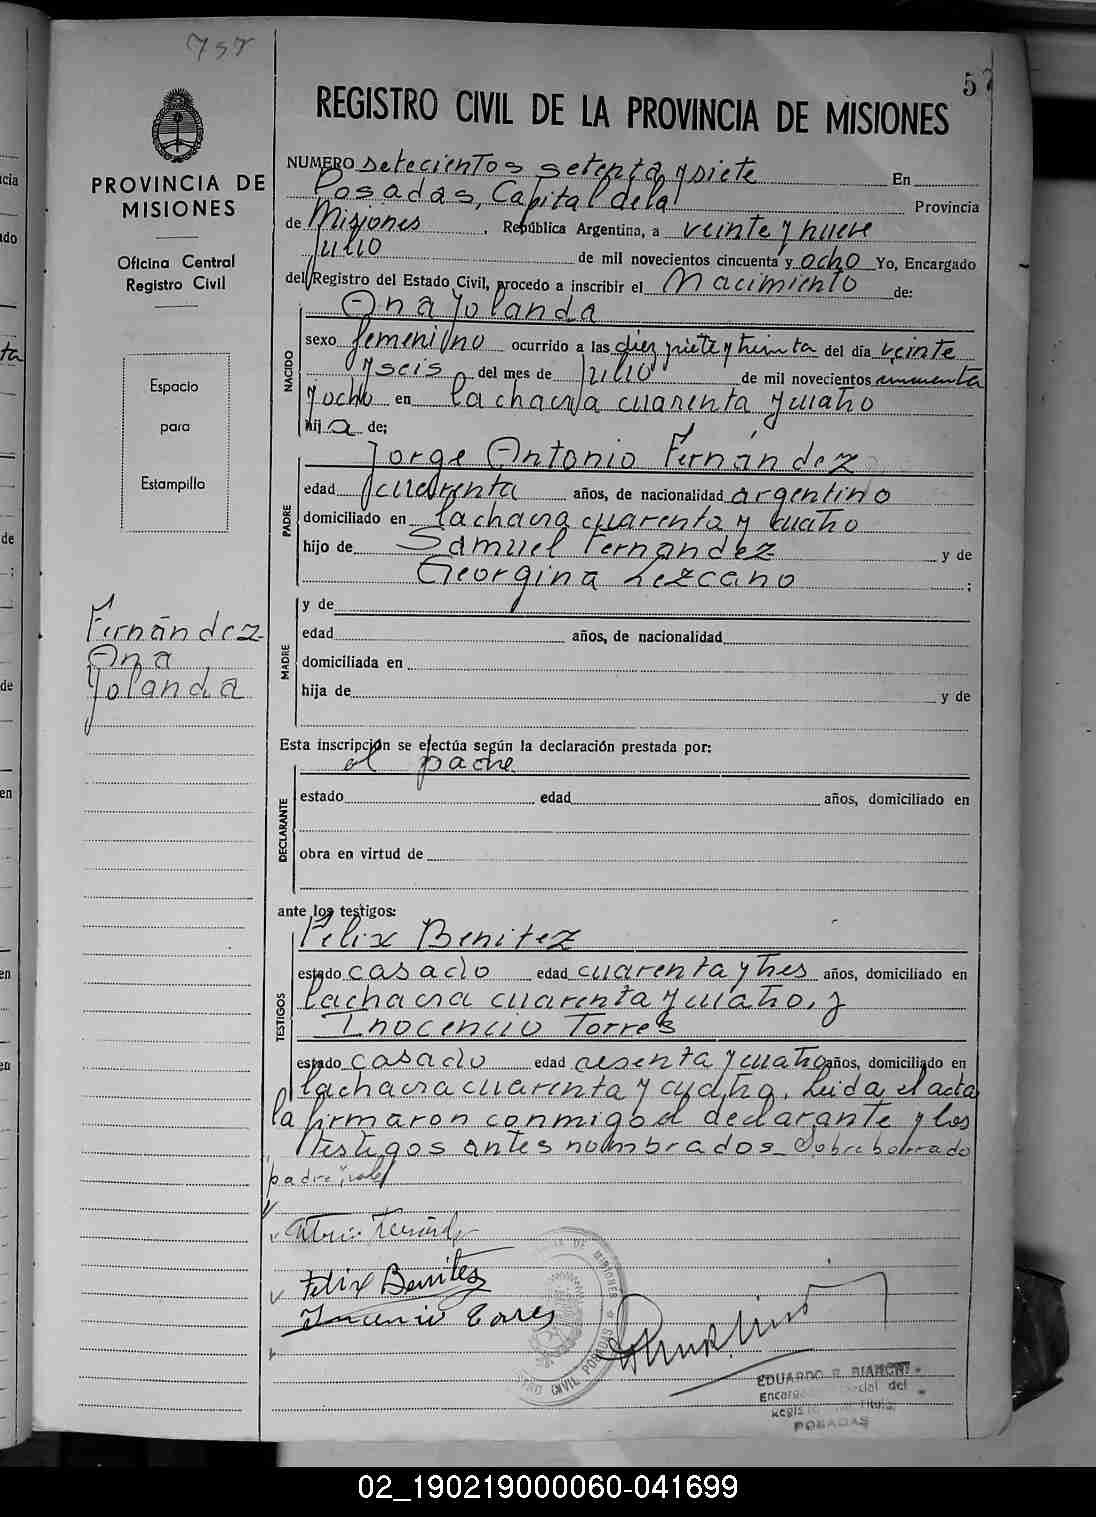 757
57
REGISTRO CIVIL DE LA PROVINCIA DE MISIONES
PROVINCIA DE
MISIONES
Oficina Central
Registro Civil
Espacio
para
Estampilla
Fernández
Ana
Yolanda
NUMERO setecientos setenta y siete En
Posadas, Capital de la Provincia
de Misiones, República Argentina, a veinte y nueve
Julio de mil novecientos cincuenta y ocho Yo, Encargado
del Registro del Estado Civil, procedo a inscribir el Nacimiento de:
NACIDO
Ana Yolanda
sexo femenino ocurrido a las diez y siete y treinta del día veinte
y seis del mes de Julio de mil novecientos cincuenta
y ocho en la chacra cuarenta y cuatro
hija de;
PADRE
Jorge Antonio Fernández
edad cuarenta años, de nacionalidad argentino
domiciliado en la chacra cuarenta y cuatro
hijo de Samuel Fernandez y de
Georgina Lezcano ;
MADRE
y de
edad años, de nacionalidad
domiciliada en
hija de y de
Esta inscripción se efectúa según la declaración prestada por:
DECLARANTE
el padre
estado edad años, domiciliado en
obra en virtud de
ante los testigos:
TESTIGOS
Felix Benitez
estado casado edad cuarenta y tres años, domiciliado en
la chacra cuarenta y cuatro, y
Inocencio Torres
estado casado edad sesenta y cuatro años, domiciliado en
la chacra cuarenta y cuatro. Leida el acta
la firmaron conmigo el declarante y los
testigos antes nombrados. Sobre borrado
padre, vale
Felix Benitez
Inocencio Torres
MISIONES
CIVIL POSADAS
EDUARDO R. BIANCHI
del
POSADAS
02_190219000060-041699